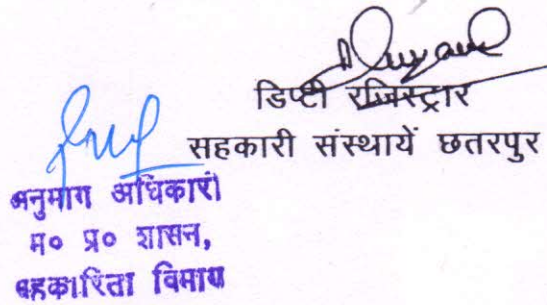 डिप्टी रजिस्ट्रार
सहकारी संस्थायें छतरपुर
अनुभाग अधिकारी
म० प्र० शासन,
सहकारिता विभाग